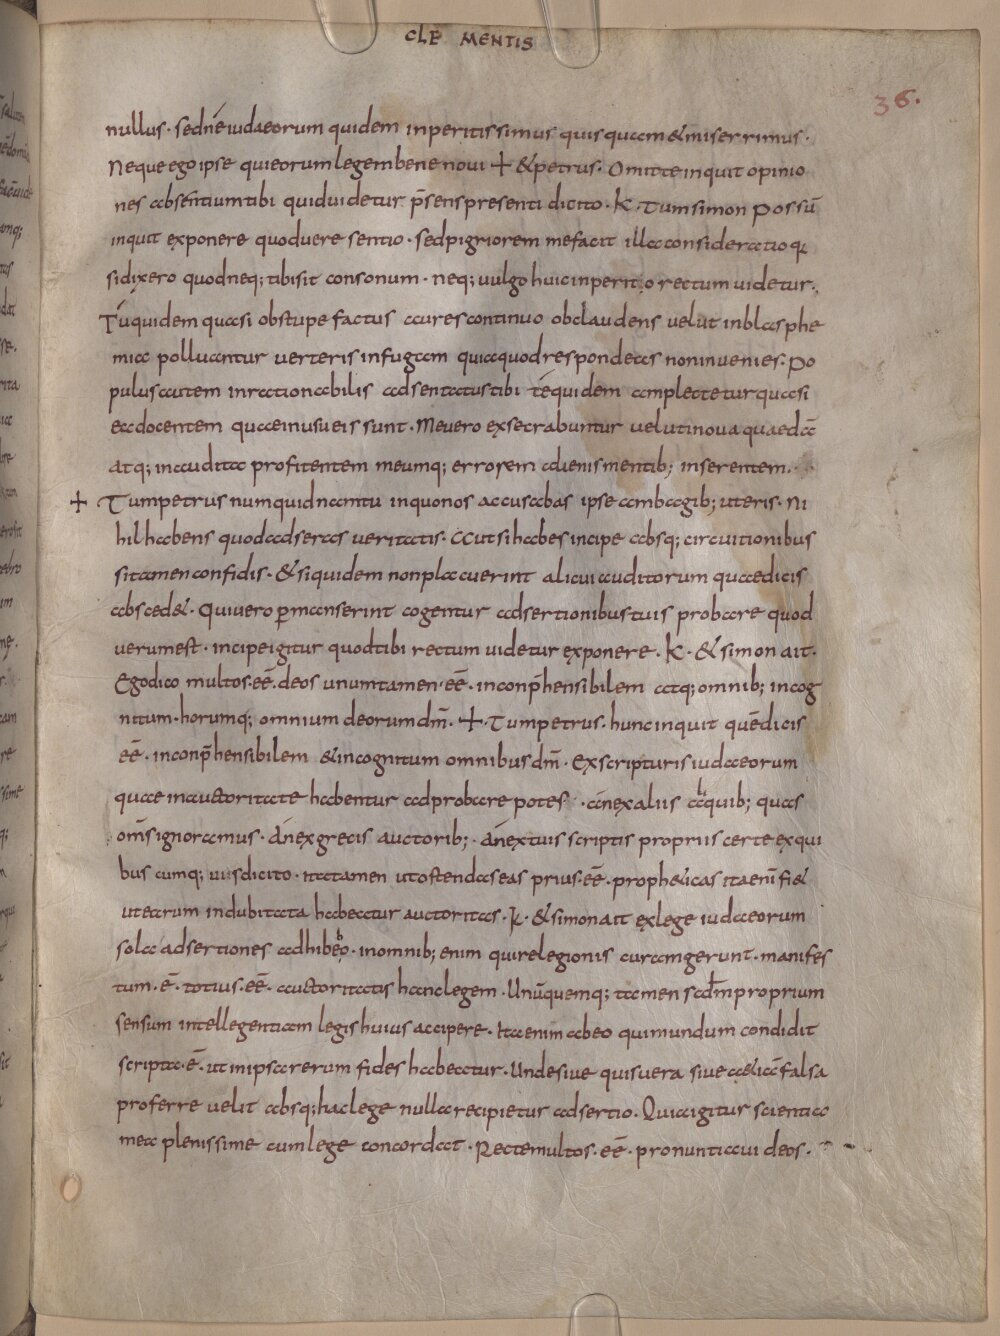 CLEMENTIS
36.
nullus · sed né iudaeorum quidem inperitissimus quisquam & miserrimus ·
Neque ego ipse qui eorum legem bene noui ✝ & petrus · Omitte inquit opinio
nes absentium tibi quid uidetur p̄sens presenti dicito · K · Tum simon possū
inquit exponere quod uere sentio · sed pigriorem me facit illa consideratio q;
si dixero quod neq; tibi sit consonum · neq; uulgo huic inperito rectum uidetur ·,
Tú quidem quasi obstupefactus aures continuo obclaudens uelut in blasphe
mia polluantur uerteris in fugam quia quod respondeas non inuenies · Po
pulus autem inrationabilis adsentatus tibi té quidem complectetur quasi
ea docentem quae in usu eis sunt · Me uero exsecrabuntur uelutí noua quaedā
atq; inaudita profitentem meumq; errorem alienis mentib; inserentem ·
✝ Tum petrus numquid nam tu in quo nos accusabas ipse ambagib; uteris · Ni
hil habens quod adseras ueritatis · Aut si habes incipe absq; circuitionibus
si tamen confidis · & siquidem non placuerint alicui auditorum quae dicis
absced& · Qui uero p̄manserint cogentur adsertionibus tuis probare quod
uerum est · incipe igitur quod tibi rectum uidetur exponere · K · & simon ait ·
Ego dico multos · eē · deos unum tamen · eē · inconp̄hensibilem atq; omnib; incog
nitum · horumq; omnium deorum dm̄ · ✝ · Tum petrus · hunc inquit quē dicis
eē · inconp̄hensibilem & incognitum omnibus dm̄ · Ex scripturis iudaeorum
quae in auctoritate habentur adprobare potes · án ex aliis quib; quas
om̄s ignoramus · Án ex grecis auctorib; · Án ex tuis scriptis propriis certe ex qui
bus cumq; uis dicito · ita tamen ut ostendas eas prius · eē · proph&icas ita enī fi&
ut earum indubitata habeatur auctoritas · K · & simon ait ex lege iudaeorum
sola adsertiones adhibebo · in omnib; enim qui relegionis curam gerunt · manifes
tum · ē · totius · eē · auctoritatis hanc legem · Unūquemq; tamen scdm proprium
sensum intellegentiam legis huius accipere · Ita enim ab eo qui mundum condidit
scripta · ē · ut in ipsa rerum fides habeatur · Unde siue quis uera siue &iā falsa
proferre uelit absq; hac lege nulla recipietur adsertio · Quia igitur scientia
mea plenissime cum lege concordat · Recte multos · eē · pronuntiaui deos ·